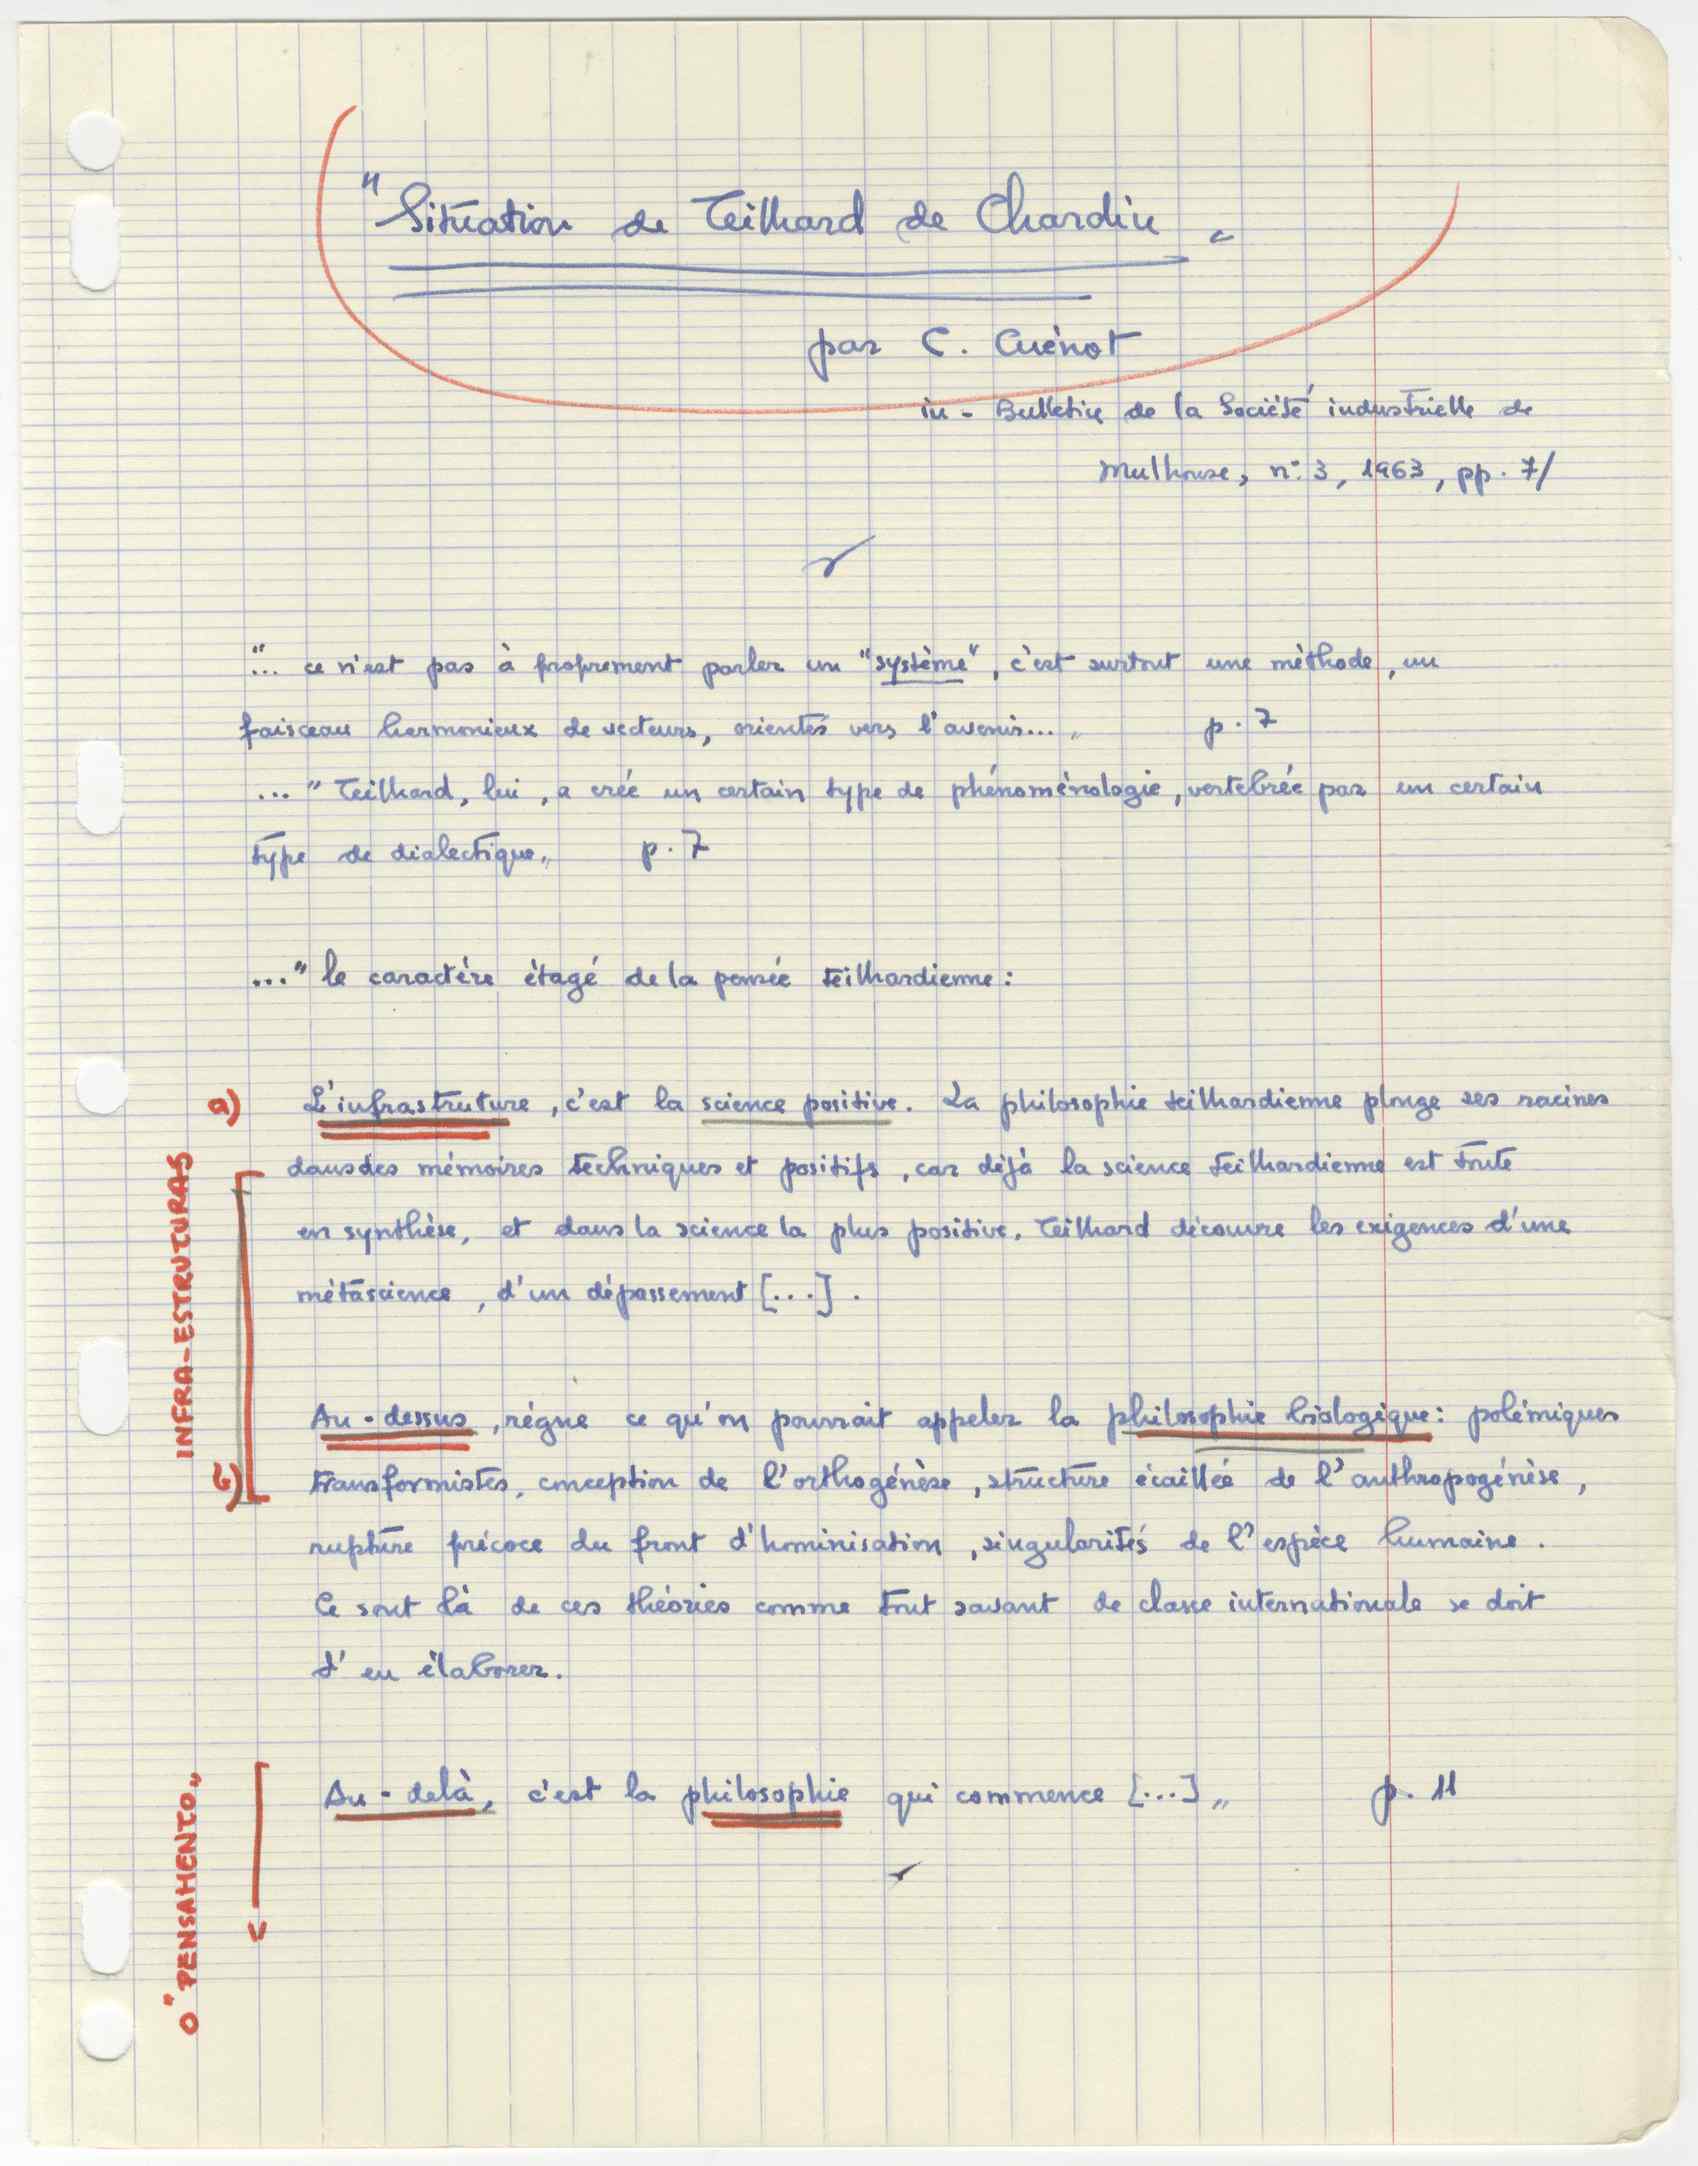 "Situation de Teilhard de Chardin"
par C. Cuénot
in - Bulletin de la Société industrielle de
Mulhouse, n: 3, 1963, pp. 7/
"... ce n'est pas à proprement parler un "système", c'est surtout une méthode, un
faisceau harmonieux de vecteurs, orientés vers l'avenir... "   p. 7
... "Teilhard, lui, a créé un certain type de phénoménologie, vertebrée par un certain
type de dialectique"   p. 7
..." le caractère étagé de la pensée teilhardienne:
a) L'infrastruture, c'est la science positive. La philosophie teilhardienne plonge ses racines
dans des mémoires techniques et positifs, car déjà la science teilhardienne est toute
en synthèse, et dans la science la plus positive, Teilhard découvre les exigences d'une
métascience, d'un dépassement [...].
INFRA-ESTRUTURAS
Au-dessus, règne ce qu'on pourrait appeler la philosophie biologique: polémiques
b) transformistes, conception de l'orthogénèse, structure écaillée de l'anthropogénèse,
rupture précoce du front d'hominisation, singularités de l'espèce humaine.
Ce sont là de ces théories comme tout savant de classe internationale se doit
d'en élaborer.
Au-delà, c'est la philosophie qui commence [...] "   p. 11
O "PENSAMENTO"